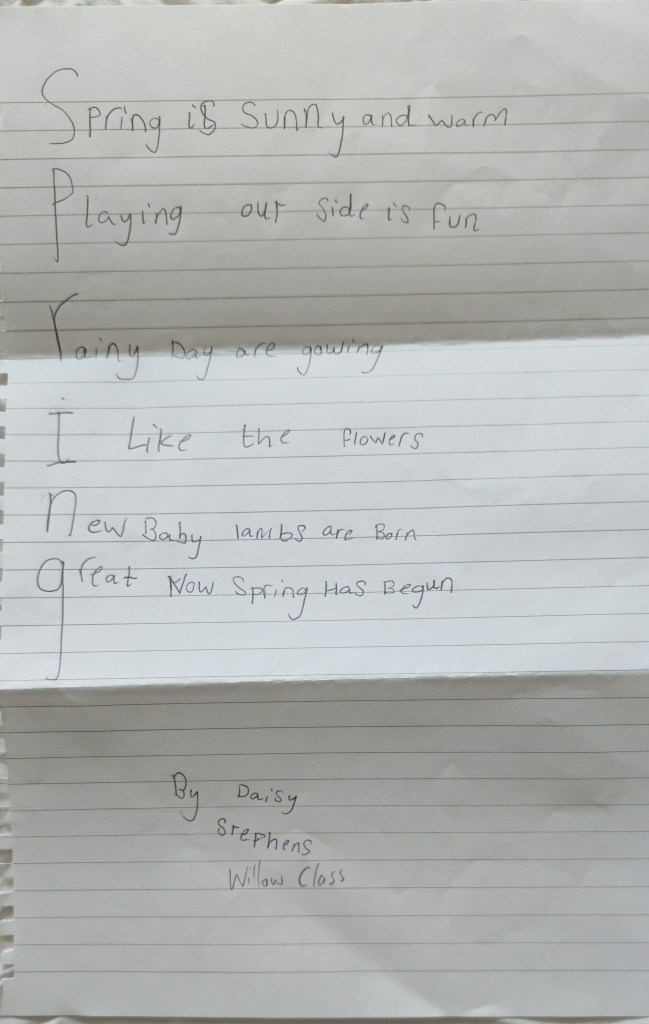 Spring is Sunny and warm
Playing out side is fun
rainy Day are gowing
I Like the flowers
new Baby lambs are Born
great Now Spring Has Begun
By Daisy
Stephens
Willow Class